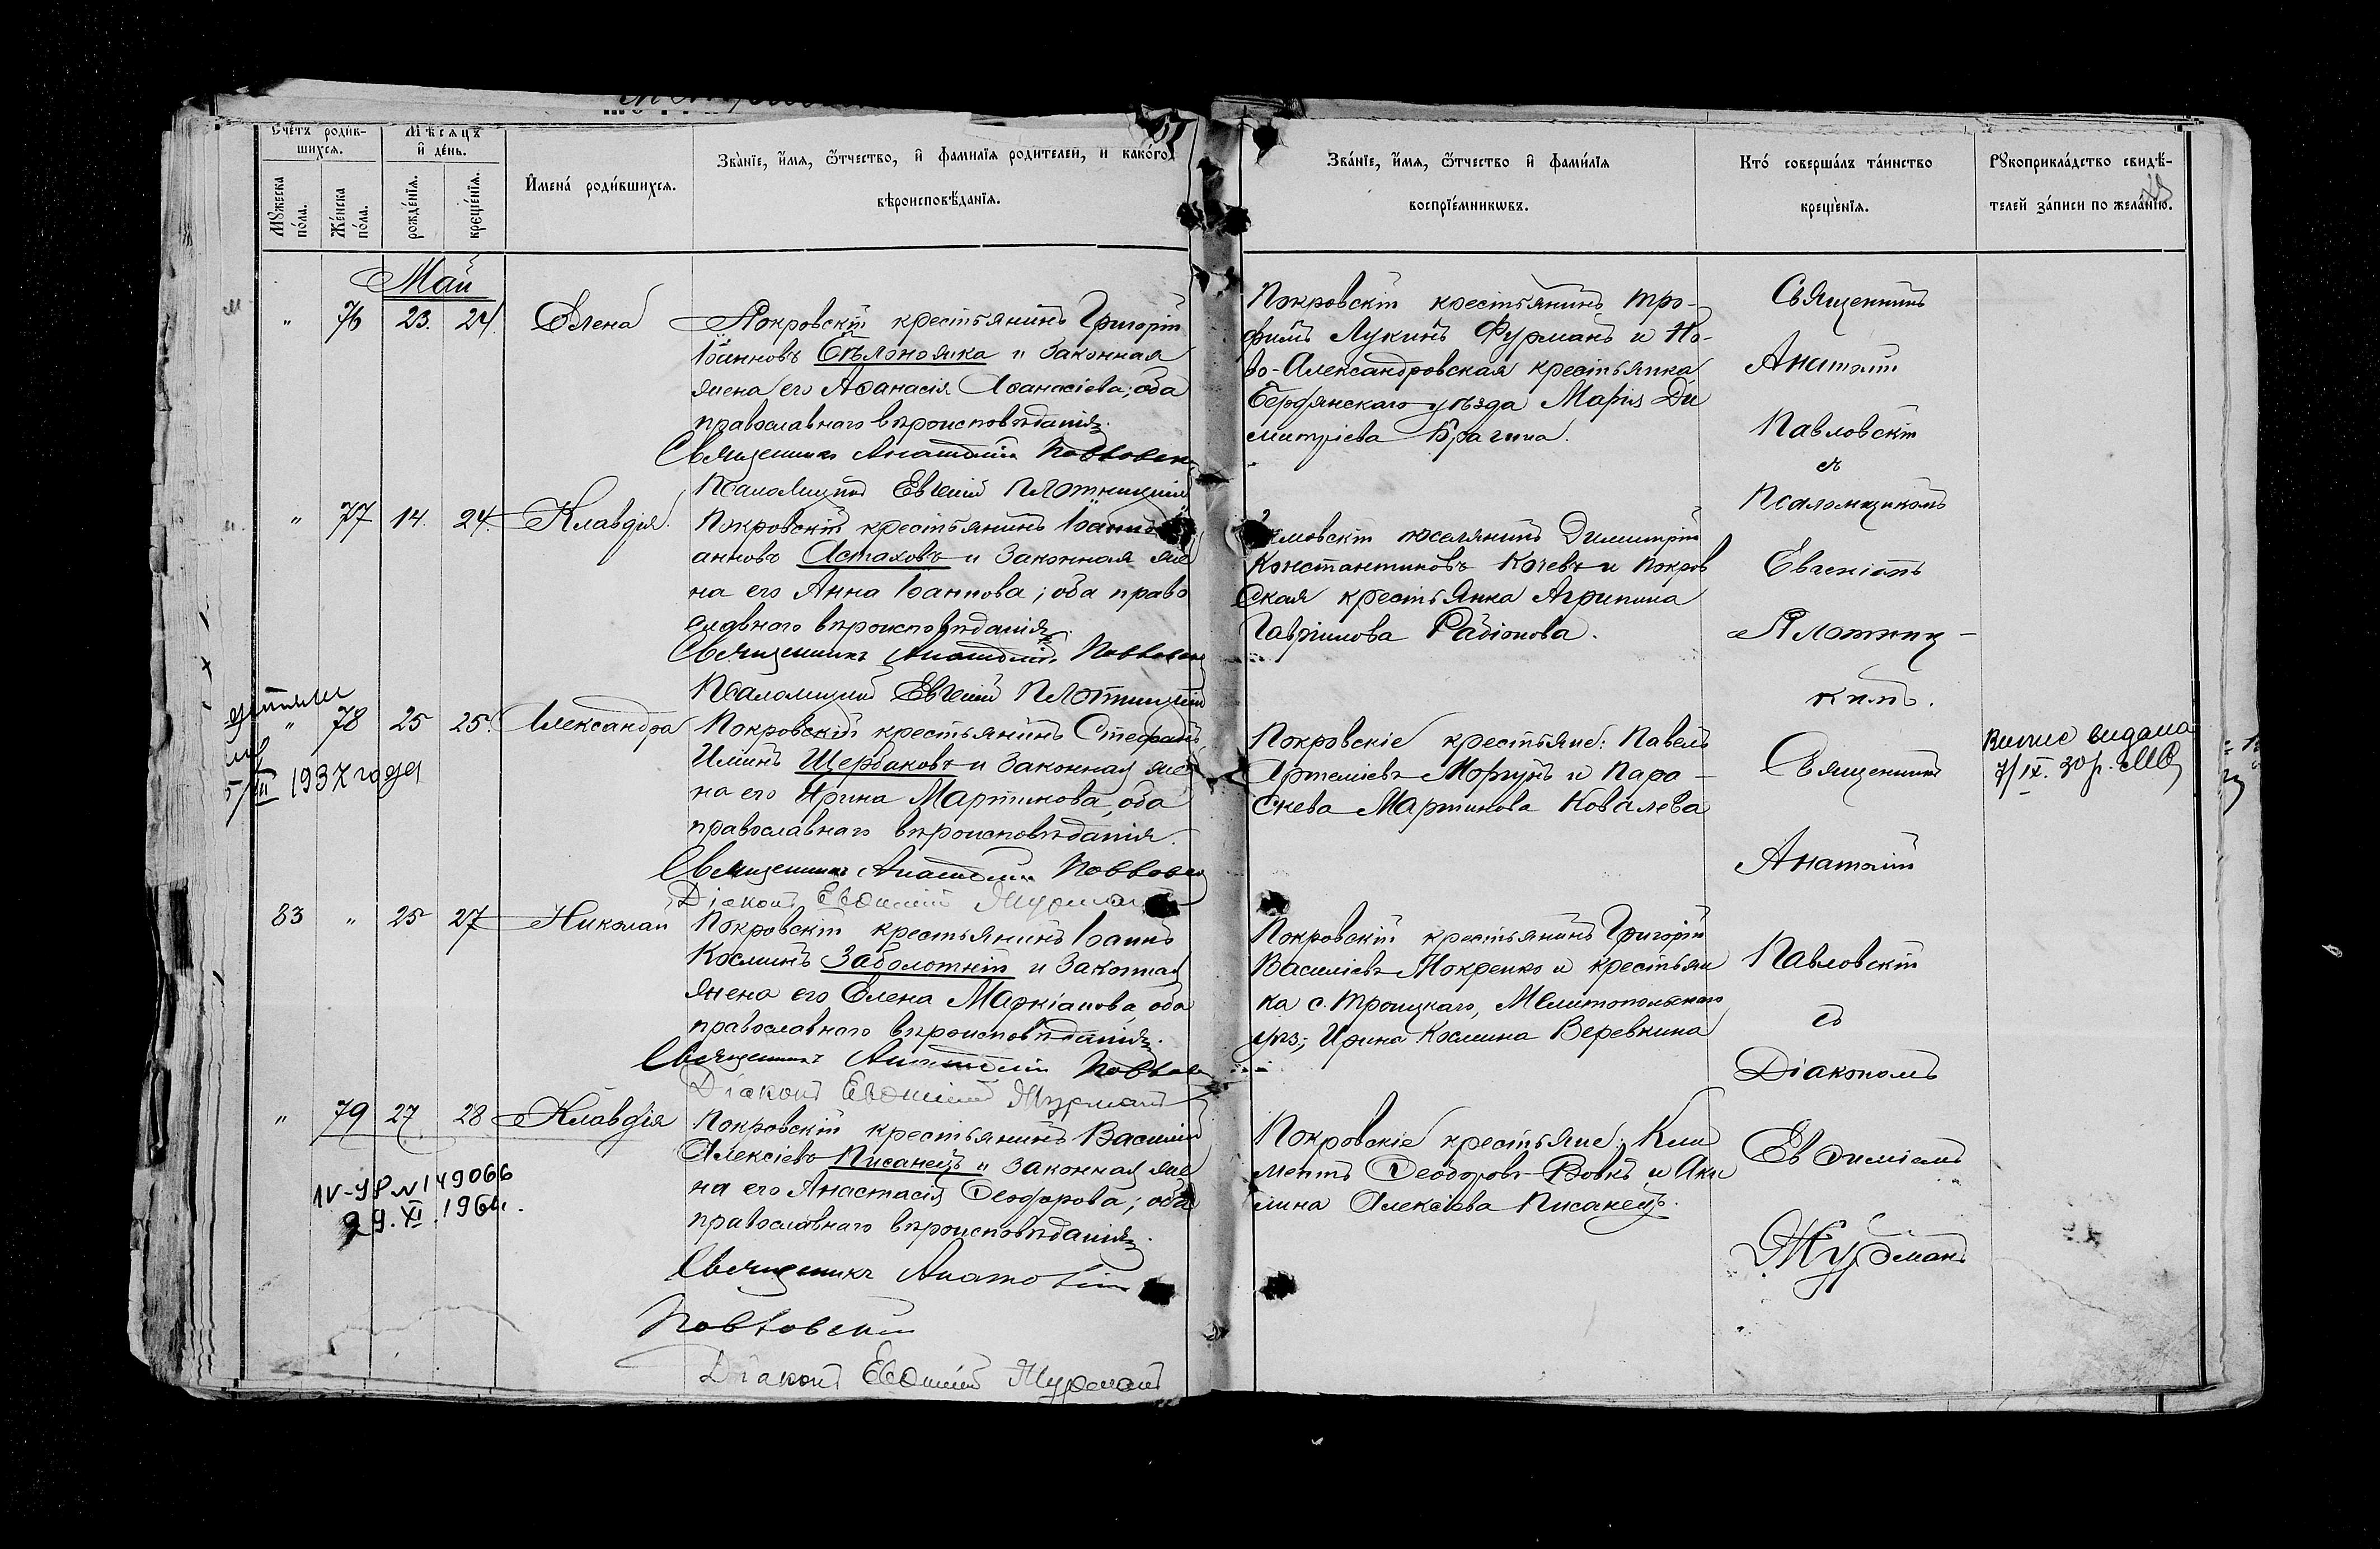 Счетъ родив-
шихся.
Мѣсяцъ
и день.
Мужеска
пола.
Женска
пола.
рожденія.
крещенія.
Имена родившихся.
Званіе, имя, отчество, и фамилія родителей, и какого
вѣроисповѣданія.
Званіе, имя, отчество и фамилія
воспріемниковъ.
Кто совершалъ таинство
крещенія.
Рукоприкладство свидѣ-
телей записи по желанію.
Май
" 76 23. 24. Елена
Покровскій крестьянинъ Григорій
Іоанновъ Бѣлоножка и законная
жена его Аѳанасія Аѳанасіева; оба
православнаго вѣроисповѣданія.
Священникъ Анатолій Павловскій
Псаломщикъ Евгеній Плотницкій
Покровскій крестьянинъ Тро-
фимъ Лукинъ Фурманъ и Но-
во-Александровская крестьянка
Бердянскаго уѣзда Марія Ди
митріева Брагина.
Священникъ
Анатолій
Павловскій
съ
Псаломщикомъ
Евгеніемъ
Плотниц-
кимъ.
" 77 14. 24. Клавдія
Покровскій крестьянинъ Іоаннъ
анновъ Астаховъ и законная же
на его Анна Іоаннова; оба право
славнаго вѣроисповѣданія.
Священникъ Анатолій Павловскій
Псаломщикъ Евгеній Плотницкій
поселянинъ Димитрій
Константиновъ Кочевъ и Покров
ская крестьянка Агрипина
Гавріилова Радіонова.
" 78 25 25. Александра
1937 года
Покровскій крестьянинъ Стефанъ
Илиинъ Щербаковъ и законная же
на его Ирина Мартинова, оба
православнаго вѣроисповѣданія.
Священникъ Анатолій Павловскій
Діаконъ Евѳимій Мурманъ
Покровскіе крестьяне: Павелъ
Артеміевъ Моргунъ и Пара-
скева Мартинова Ковалева
Священникъ
Анатолій
Павловскій
съ
Діакономъ
Евѳиміемъ
Мурманъ
Випис видана
7/IX. 30 р.
83 " 25 27 Николай
Покровскій крестьянинъ Іоаннъ
Косминъ Заболотній и законная
жена его Елена Маркіанова, оба
православнаго вѣроисповѣданія.
Священникъ Анатолій Павловскій
Діаконъ Евѳимій Мурманъ
Покровскій крестьянинъ Григорій
Василіевъ Мокренко и крестьян
ка с. Троицкаго, Мелитопольскаго
уѣз., Ирина Космина Веревкина
" 79 27 28 Клавдія
IV-УР №149066
29.XI.1964.
Покровскій крестьянинъ Василій
Алексіевъ Писанецъ и законная же
на его Анастасія Ѳеодорова; оба
православнаго вѣроисповѣданія.
Священникъ Анатолій
Павловскій
Діаконъ Евѳимій Мурманъ
Покровскіе крестьяне: Кли
ментъ Ѳеодоровъ Вовкъ и Аки
лина Алексіева Писанецъ.